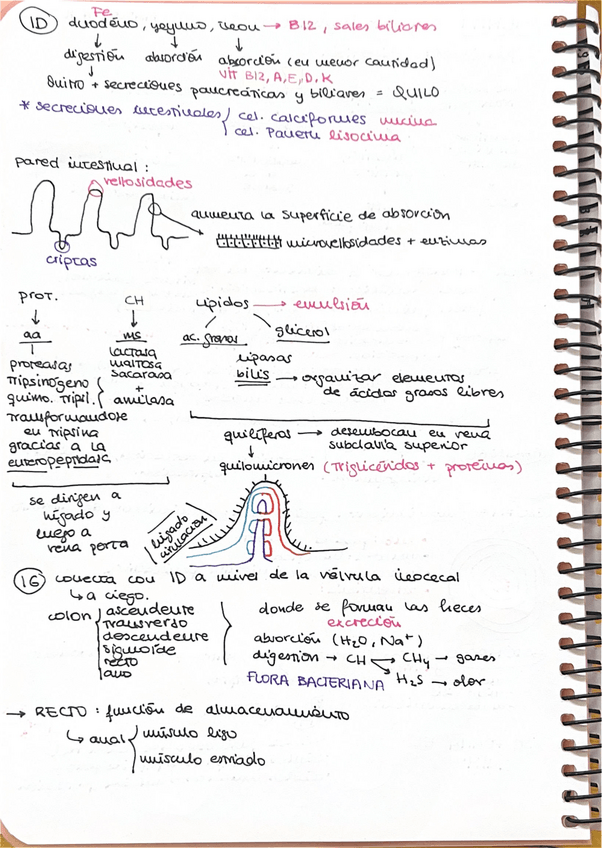 Fe
ID duodeno, yeyuno, íleon → B12, sales biliares
digestión absorción absorción (en menor cantidad)
VIT B12, A, E, D, K
Quimo + secreciones pancreáticas y biliares = QUILO
* secreciones intestinales cel. calciformes mucina
cel. Paneth lisocima
pared intestinal:
vellosidades
aumenta la superficie de absorción
microvellosidades + enzimas
criptas
prot. CH lípidos → emulsión
aa ms ac. grasos glicerol
proteasas
Tripsinógeno
quimo. tripil.
Transformandose
en tripsina
gracias a la
enteropeptidasa
lactasa
maltosa
sacarasa
+
amilasa
lipasas
bilis → organizar elementos
de ácidos grasos libres
quilíferos → desembocan en vena
subclavia superior
quilomicrones (Triglicéridos + proteínas)
se dirigen a
hígado y
luego a
vena porta
hígado
circulación
IG conecta con ID a nivel de la válvula ileocecal
↳ a ciego.
colon ascendente
transverso
descendente
sigmoide
recto
ano
donde se forman las heces
excreción
absorción (H₂O, Na⁺)
digestión → CH → CH₄ → gases
H₂S → olor
FLORA BACTERIANA
→ RECTO: función de almacenamiento
↳ anal músculo liso
músculo estriado